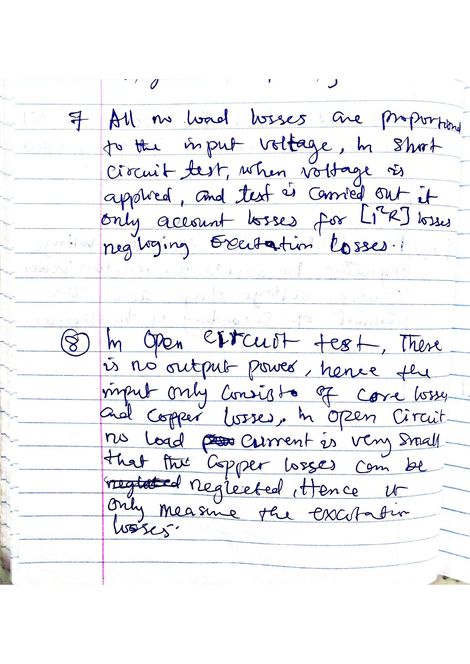 7 All no load losses are proportional
to the input voltage, In short
circuit test, when voltage is
applied, and test is carried out it
only account losses for [I²R] losses
negloging excitation losses.
8 In open circuit test, There
is no output power, hence the
input only consists of core losses
and copper losses, In open circuit
no load current is very small
that the copper losses can be
neglected, Hence it
only measure the excitation
losses.